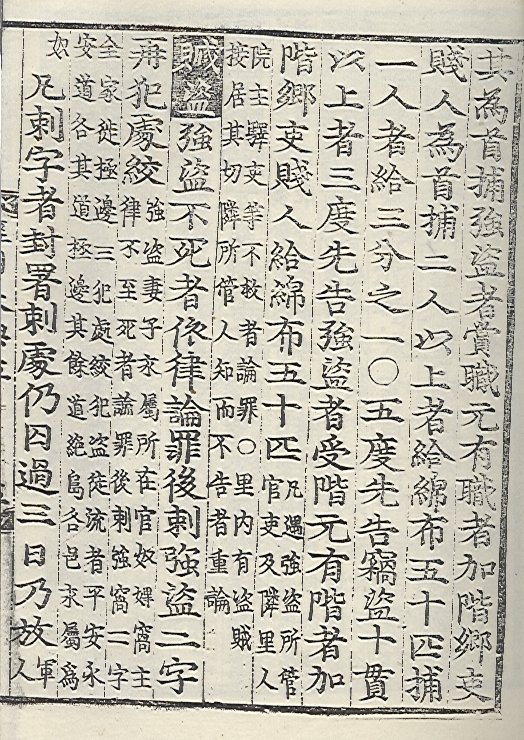 其為首捕強盜者賞職元有職者加階鄕吏
賤人為首捕二人以上者給綿布五十匹捕
一人者給三分之一○五度先告竊盜十貫
以上者三度先告強盜者受階元有階者加
階鄕吏賤人給綿布五十匹
凡遇強盜所管
官吏及隣里人
院主驛吏等不救者論罪○里内有盜賊
接居其切隣所管人知而不告者重論
贓盜強盜不死者依律論罪後刺強盜二字
再犯處絞
強盜妻子永屬所在官奴婢窩主
律不至死者論罪後刺強窩二字
全家徙極邊三犯處絞犯盜徙流者平安永
安道各其道極邊其餘道絶島各邑永屬為
奴
凡刺字者封署刺處仍囚過三日乃放
軍
人